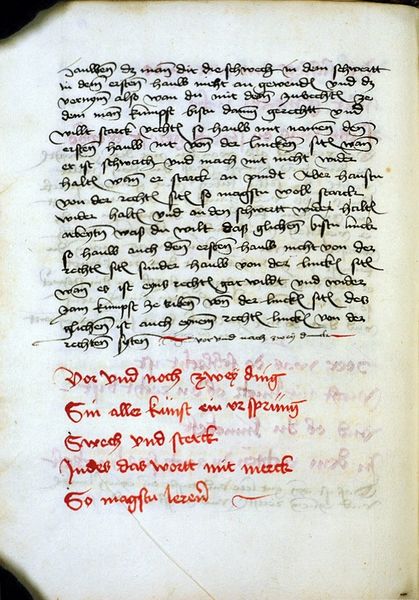 dz man dir die schwech in dem schwertt
in dem ersten hauw nicht an gewendt und dz
vernym also wan du mit dem Zuvechtn ze
dem man kumpst bistu dann gerechtt und
wilt starck vechtn so hauw mit namen den
ersten hauw nit von der lincken sitn wan
er ist schwach und mach mit nicht wider
haltn wan er starck an pindt Aber haustu
von der rechtn sitn so magstu woll starck
wider haltn und an dem schwertt wider haltn
arbeytn waß du wilt daß glichen bistu linck
so hauw auch den ersten hauw nicht von der
rechtn sitn sunder hauw von der linckn sitn
wan es ist eynß rechtn gar wildt und wider
kunst ze triben von der linckn sitn des
glichen ist auch eynem rechtn linckn von der
rechten sytten vor und nach zwey
Vor und noch zwey ding
Sin aller kunst ein ursprung
Swech und sterck
Indes das wortt mit merck
So magstu leren